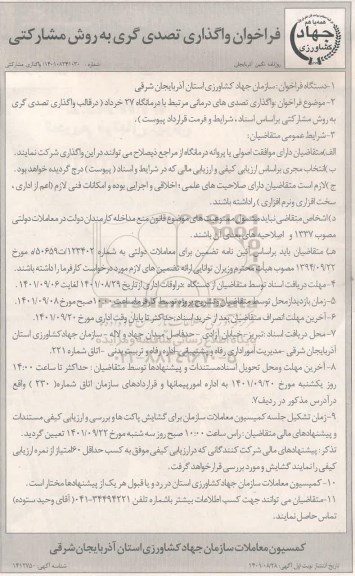 همه با هم
جهاد
کشاورزی
فراخوان واگذاری تصدی گری به روش مشارکتی
روزنامه نگین آذربایجان
شماره:
واگذاری مشارکتی
۱-دستگاه فراخوان: سازمان جهاد کشاورزی استان آذربایجان شرقی
۲-موضوع فراخوان: واگذاری تصدی های درمانی مرتبط با درمانگاه ۲۷ خرداد (در قالب واگذاری تصدی گری
به روش مشارکتی براساس اسناد، شرایط و فرمت قرارداد پیوست).
۳-شرایط عمومی متقاضیان:
الف) متقاضیان دارای موافقت اصولی یا پروانه درمانگاه از مراجع ذیصلاح می توانند در این واگذاری شرکت نمایند.
ب) انتخاب مجری براساس ارزیابی کیفی و ارزیابی مالی که در شرایط و اسناد (پیوست) درج گردیده خواهد بود.
ج) لازم است متقاضیان دارای صلاحیت های علمی، اخلاقی و اجرایی بوده و امکانات فنی لازم (اعم از اداری،
سخت افزاری و نرم افزاری) را داشته باشند.
د) اشخاص متقاضی نباید مشمول ممنوعیت های موضوع قانون منع مداخله کارمندان دولت در معاملات دولتی
مصوب ۱۳۳۷ و اصلاحیه های بعدی آن باشند.
هـ) متقاضیان باید براساس آئین نامه تضمین برای معاملات دولتی به شماره ۱۲۳۴۰۲/ت۵۰۶۵۹ه مورخ
۱۳۹۴/۰۹/۲۲ مصوب هیأت محترم وزیران توانایی ارائه تضمین های لازم مورد درخواست کارفرما را داشته باشند.
۴- مهلت دریافت اسناد توسط متقاضیان از دستگاه: در اوقات اداری از تاریخ ۱۴۰۱/۰۸/۲۹ لغایت ۱۴۰۱/۰۹/۰۶.
۵- زمان بازدید از محل توسط متقاضیان: صبح مورخ ۱۴۰۱/۰۹/۰۸.
۶- آخرین مهلت انصراف متقاضیان بعد از خرید اسناد: حداکثر تا پایان وقت اداری مورخ ۱۴۰۱/۰۹/۲۰.
۷- محل دریافت اسناد: تبریز- خیابان آزادی - حدفاصل میدان جهاد و لاله - سازمان جهاد کشاورزی استان
آذربایجان شرقی - مدیریت امور اداری رفاه و پشتیبانی- اداره رفاه و تربیت بدنی - اتاق شماره ۲۲۱.
۰۲۱-۸۸۳۴۹۶۷۰-۵
۸- آخرین مهلت ومحل تحویل اسناد، مستندات و پیشنهادها توسط متقاضیان: حداکثر تا ساعت ۱۴:۰۰
روز یکشنبه مورخ ۱۴۰۱/۰۹/۲۰ به اداره امور پیمانها و قراردادهای سازمان اتاق شماره (۲۳۰) واقع
در آدرس مذکور در ردیف ۷.
۹- زمان تشکیل جلسه کمیسیون معاملات سازمان برای گشایش پاکت ها و بررسی و ارزیابی کیفی مستندات
و پیشنهادهای مالی متقاضیان: راس ساعت ۱۰:۰۰ صبح روز سه شنبه مورخ ۱۴۰۱/۰۹/۲۲ تعیین گردید.
تذکر: پیشنهادهای مالی شرکت کنندگانی که در ارزیابی کیفی موفق به کسب حداقل ۶۰ امتیاز از نمره ارزیابی
کیفی را نمایند گشایش و مورد بررسی قرار خواهد گرفت.
۱۰- کمیسیون معاملات سازمان جهاد کشاورزی استان در رد و یا قبول هر یک از پیشنهادها مختار است.
۱۱- متقاضیان می توانند جهت کسب اطلاعات بیشتر باشماره تلفن ۳۴۴۹۴۲۲۱-۰۴۱ (آقای وحید ستوده)
تماس حاصل نمایند.
کمیسیون معاملات سازمان جهاد کشاورزی استان آذربایجان شرقی
تاریخ انتشار نوبت اول آگهی: ۱۴۰۱/۰۸/۲۸
شناسه آگهی: